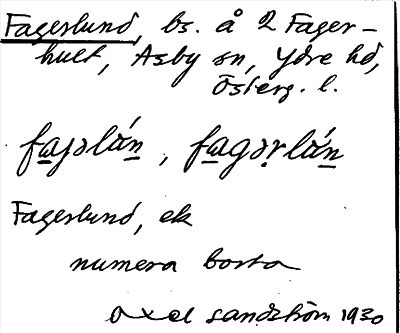 Fagerlund, bs. å 2 Fager-
hult, Asby sn, Ydre hd,
Österg. l.
fa̲ɟəlán̲, fa̲gər̩lán̲
Fagerlund, ek
numera borta
Axel Sandström 1930